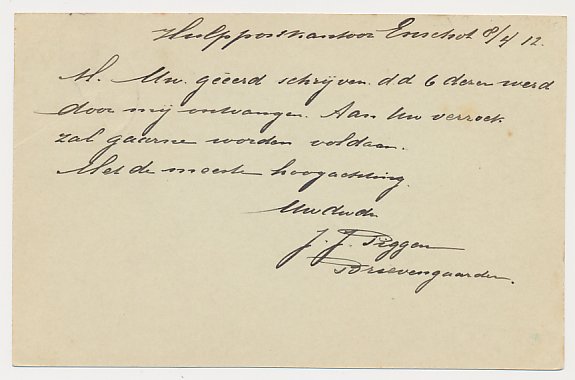 Hulppostkantoor Enschot 8/4 12.
M. Uw. geëerd schrijven dd 6 dezer werd
door mij ontvangen. Aan Uw verzoek
zal gaarne worden voldaan.
Met de meeste hoogachting
Uwdwdr
J. J. Piggen
Brievengaarder.